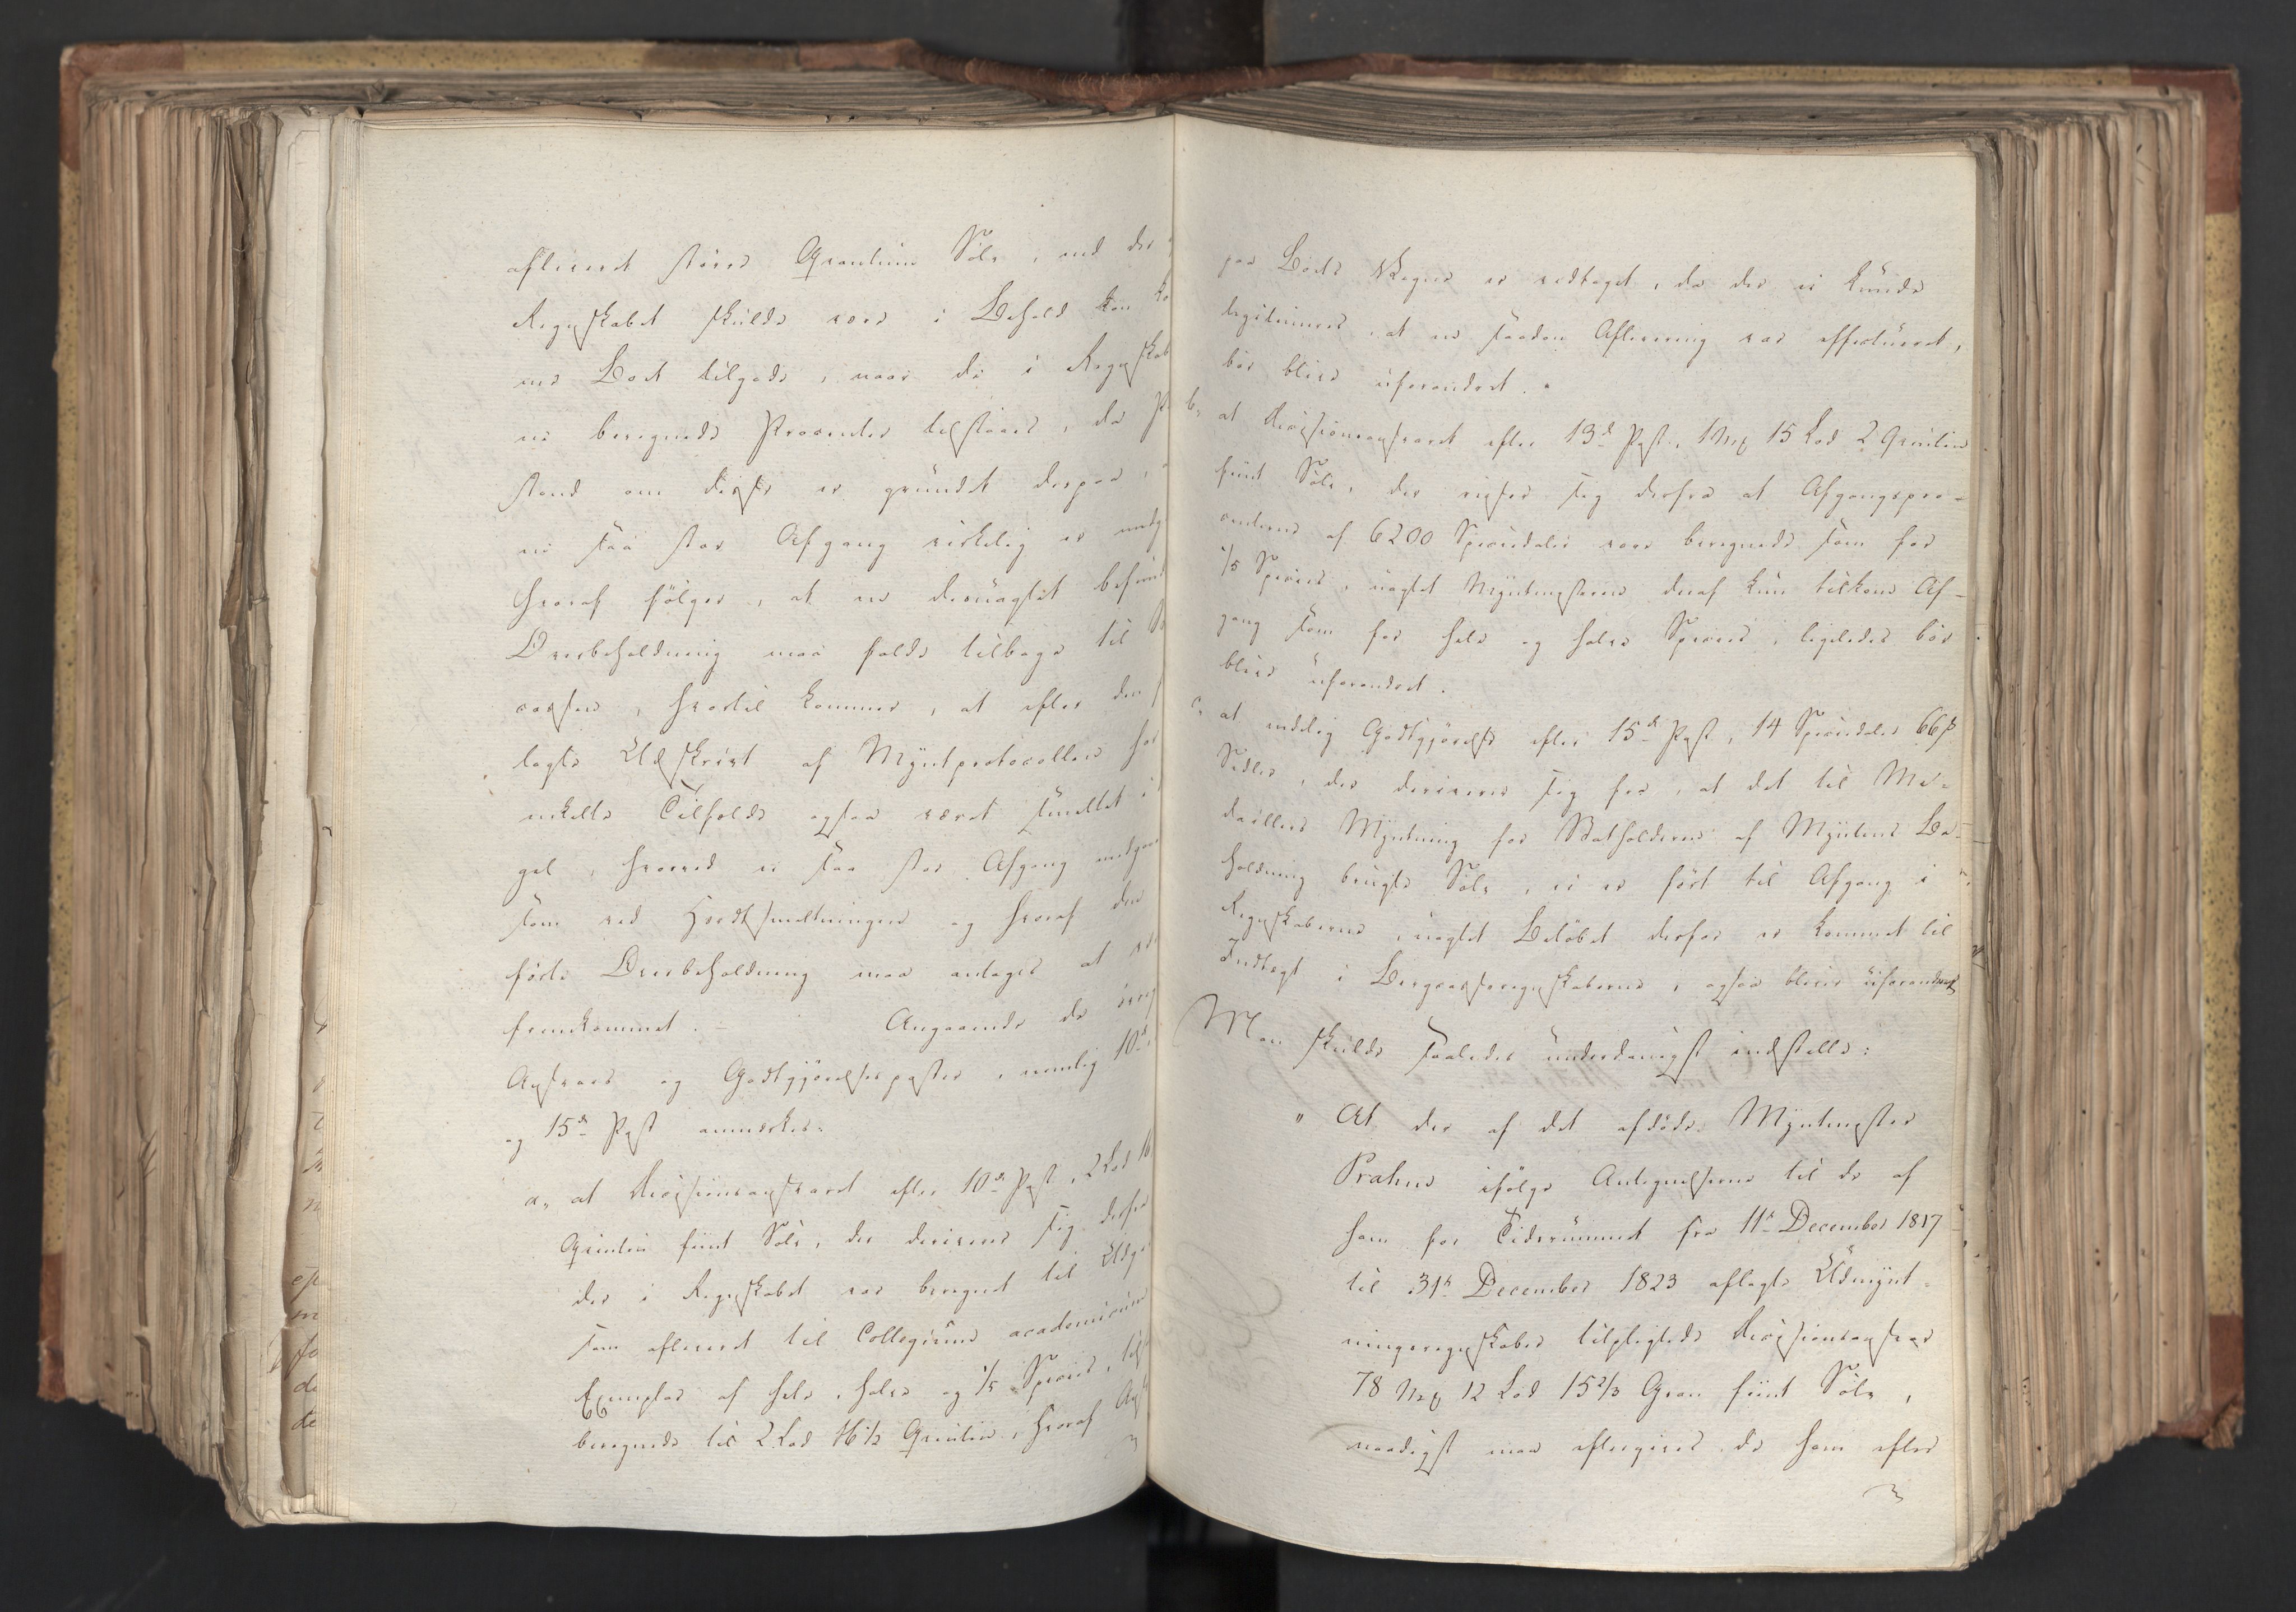 afleveret større Qvantum Sølv, end der
Regnskabet skulde være i Behold kan ko
me Boet tilgode, naar de i Regnskab
ne beregnede Procenter tilstaaes, da P
stand om disse er grundet derpaa,
en saa stor Afgang virkelig er medg
hvoraf følger, at en desuagtet befund
Overbeholdning maa falde tilbage til St
cassen, hvortil kommer, at efter den f
lagte Udskrivt af Myntprotocollen har
enkelte Tilfælde ogsaa været smeltet i
gel, hvorved ei saa stor Afgang medgaaer
som ved Herdtsmeltningen og hvoraf den
førte Overbeholdning maa antages at være
fremkommet. – Angaaende de øvrig
Ansvars og Godtgjørelsesposter, nemlig 10de
og 15de Post anmærkes:
a, at Revisionsansvaret efter 10de Post, 2 Lod 16
Qvintin fiint Sølv, der deriverer sig derfra
der i Regnskabet var beregnet til Udgi
som afleveret til Collegium academicum
Exemplar af hele, halve og 1/5 Species, tils
beregnede til 2 Lod 16 1/2 Qvintin, hvoraf Ans
paa Boets Vegne er vedtaget, da der ei kunde
legitimeres, at en saadan Aflevering var effectueret,
bør blive uforandret.
b, at Revisionsansvaret efter 13de Post, 1 Mk 15 Lod 2 Qvintin
fiint Sølv, der reiser sig derfra at Afgangspro-
centerne af 6200 Speciedaler vare beregnede som for
1/5 Species, uagtet Myntmesteren deraf kun tilkom Af-
gang som for hele og halve Species, ligeledes bør
blive uforandret.
c, at endelig Godtgjørelse efter 15de Post, 14 Speciedaler 66 ß
Sedler, der deriverer sig fra, at det til Me-
dailles Myntning for Statholderen af Myntens Be-
holdning brugte Sølv, ei er ført til Afgang i
Regnskaberne, uagtet Beløbet derfor er kommet til
Indtægt i Bergcasseregnskaberne, ogsaa bliver uforandret
Man skulde saaledes underdanigst indstille:
" At der af det afdøde Myntmester
Prahns ifølge Antegnelserne til de af
ham for Tidsrummet fra 11te December 1817
til 31te December 1823 aflagte Udmynt-
ningsregnskaber tilpligtede Revisionsansvar
78 Mk 12 Lod 15 2/3 Gran fiint Sølv,
naadigst maa eftergives de ham efter